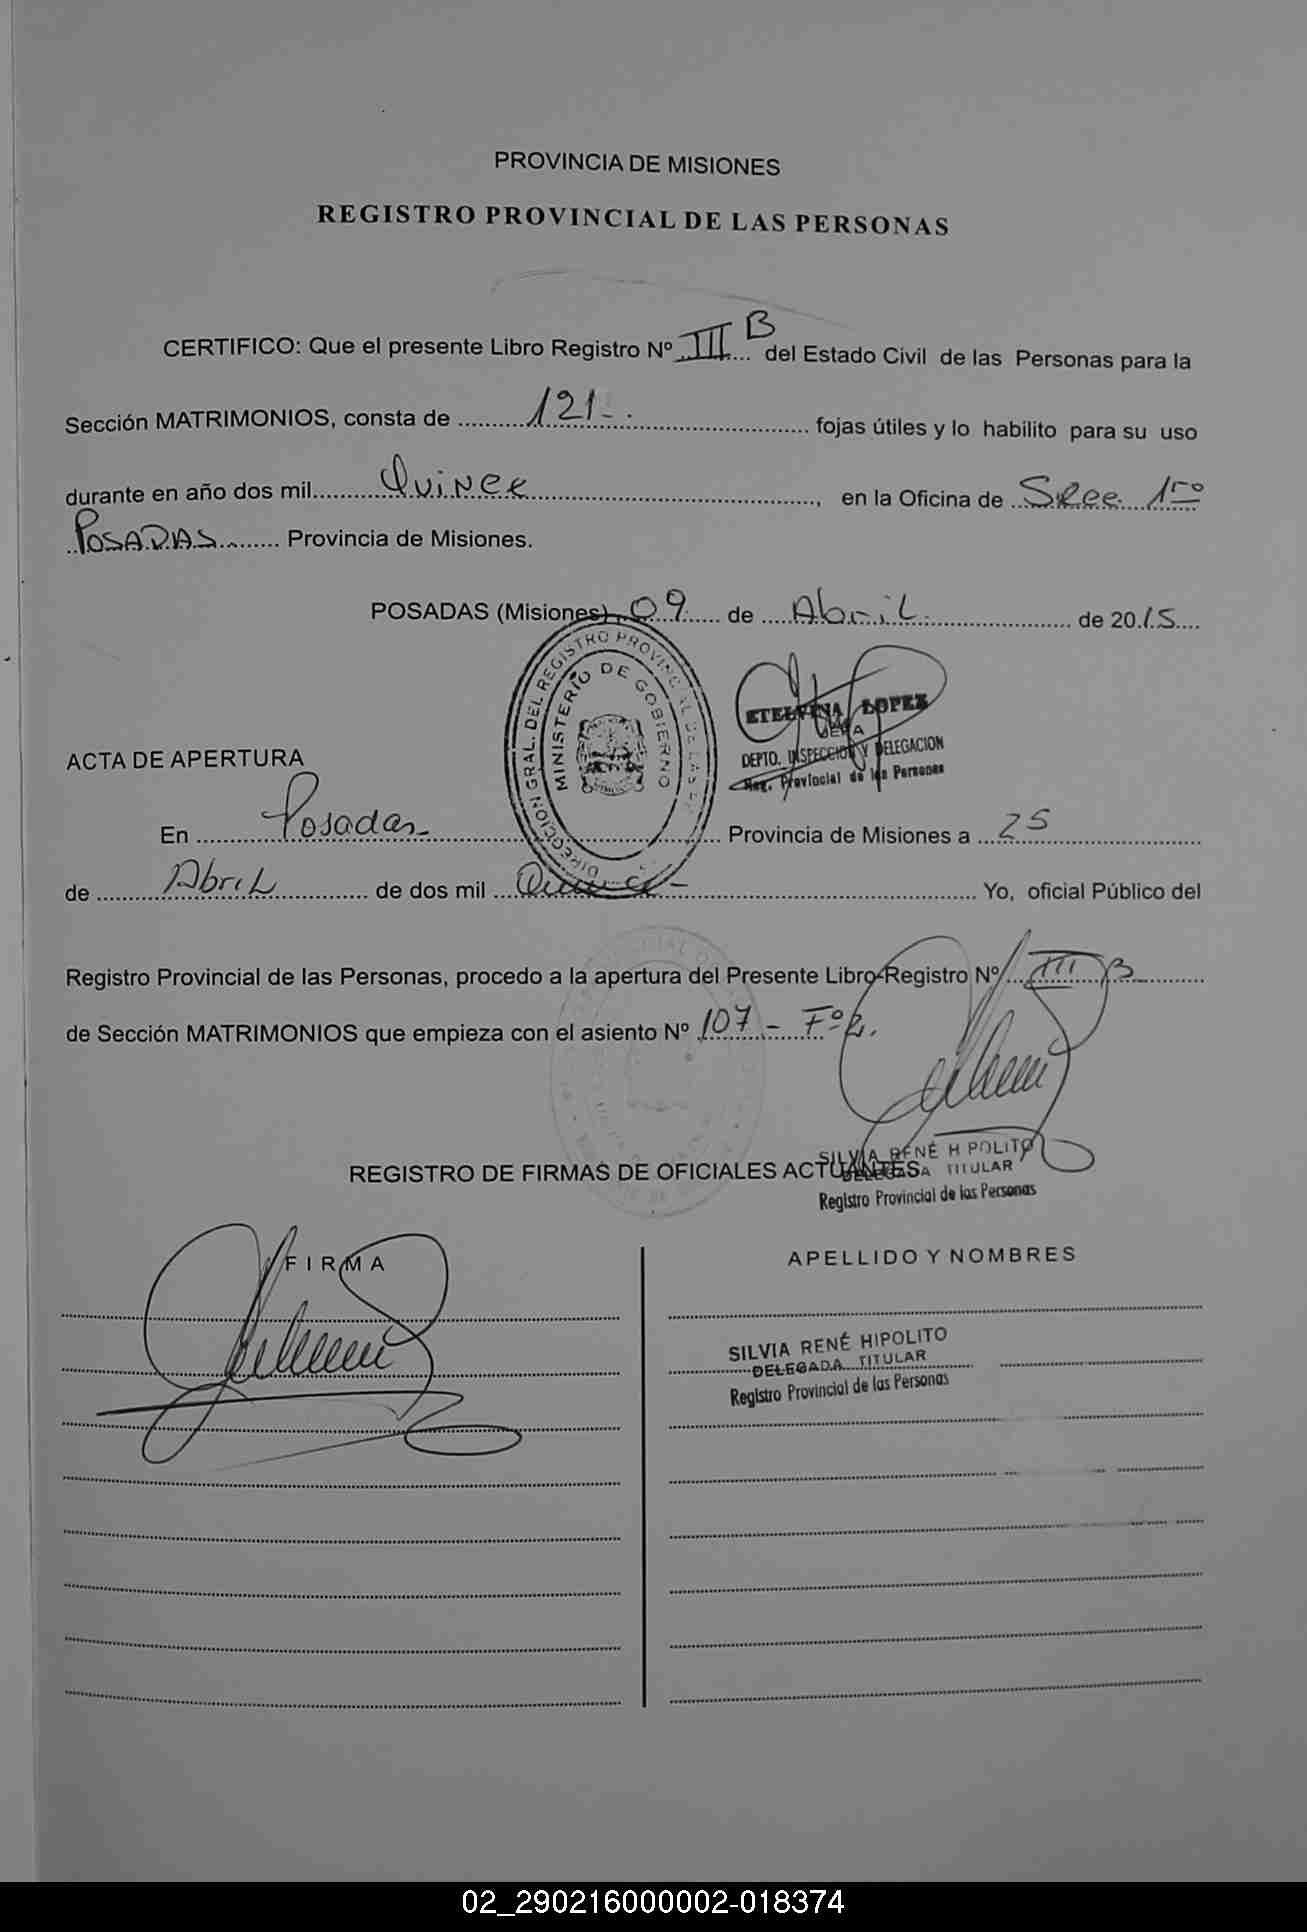 PROVINCIA DE MISIONES
REGISTRO PROVINCIAL DE LAS PERSONAS
CERTIFICO: Que el presente Libro Registro Nº III B del Estado Civil de las Personas para la
Sección MATRIMONIOS, consta de 121-. fojas útiles y lo habilito para su uso
durante en año dos mil Quince, en la Oficina de Secc. 1ro
POSADAS Provincia de Misiones.
POSADAS (Misiones), 09 de Abril de 2015
ETELVINA LOPEZ
JEFA
DEPTO. INSPECCION Y DELEGACION
Reg. Provincial de las Personas
DIRECCION GRAL. DEL REGISTRO PROVINCIAL DE LAS
MINISTERIO DE GOBIERNO
ACTA DE APERTURA
En Posadas- Provincia de Misiones a 25
de Abril de dos mil Quince- Yo, oficial Público del
Registro Provincial de las Personas, procedo a la apertura del Presente Libro-Registro Nº III B
de Sección MATRIMONIOS que empieza con el asiento Nº 107 - Fº 2.
SILVIA RENÉ HIPOLITO
DELEGADA TITULAR
Registro Provincial de las Personas
REGISTRO DE FIRMAS DE OFICIALES ACTUANTES
FIRMA
APELLIDO Y NOMBRES
SILVIA RENÉ HIPOLITO
DELEGADA TITULAR
Registro Provincial de las Personas
02_290216000002-018374